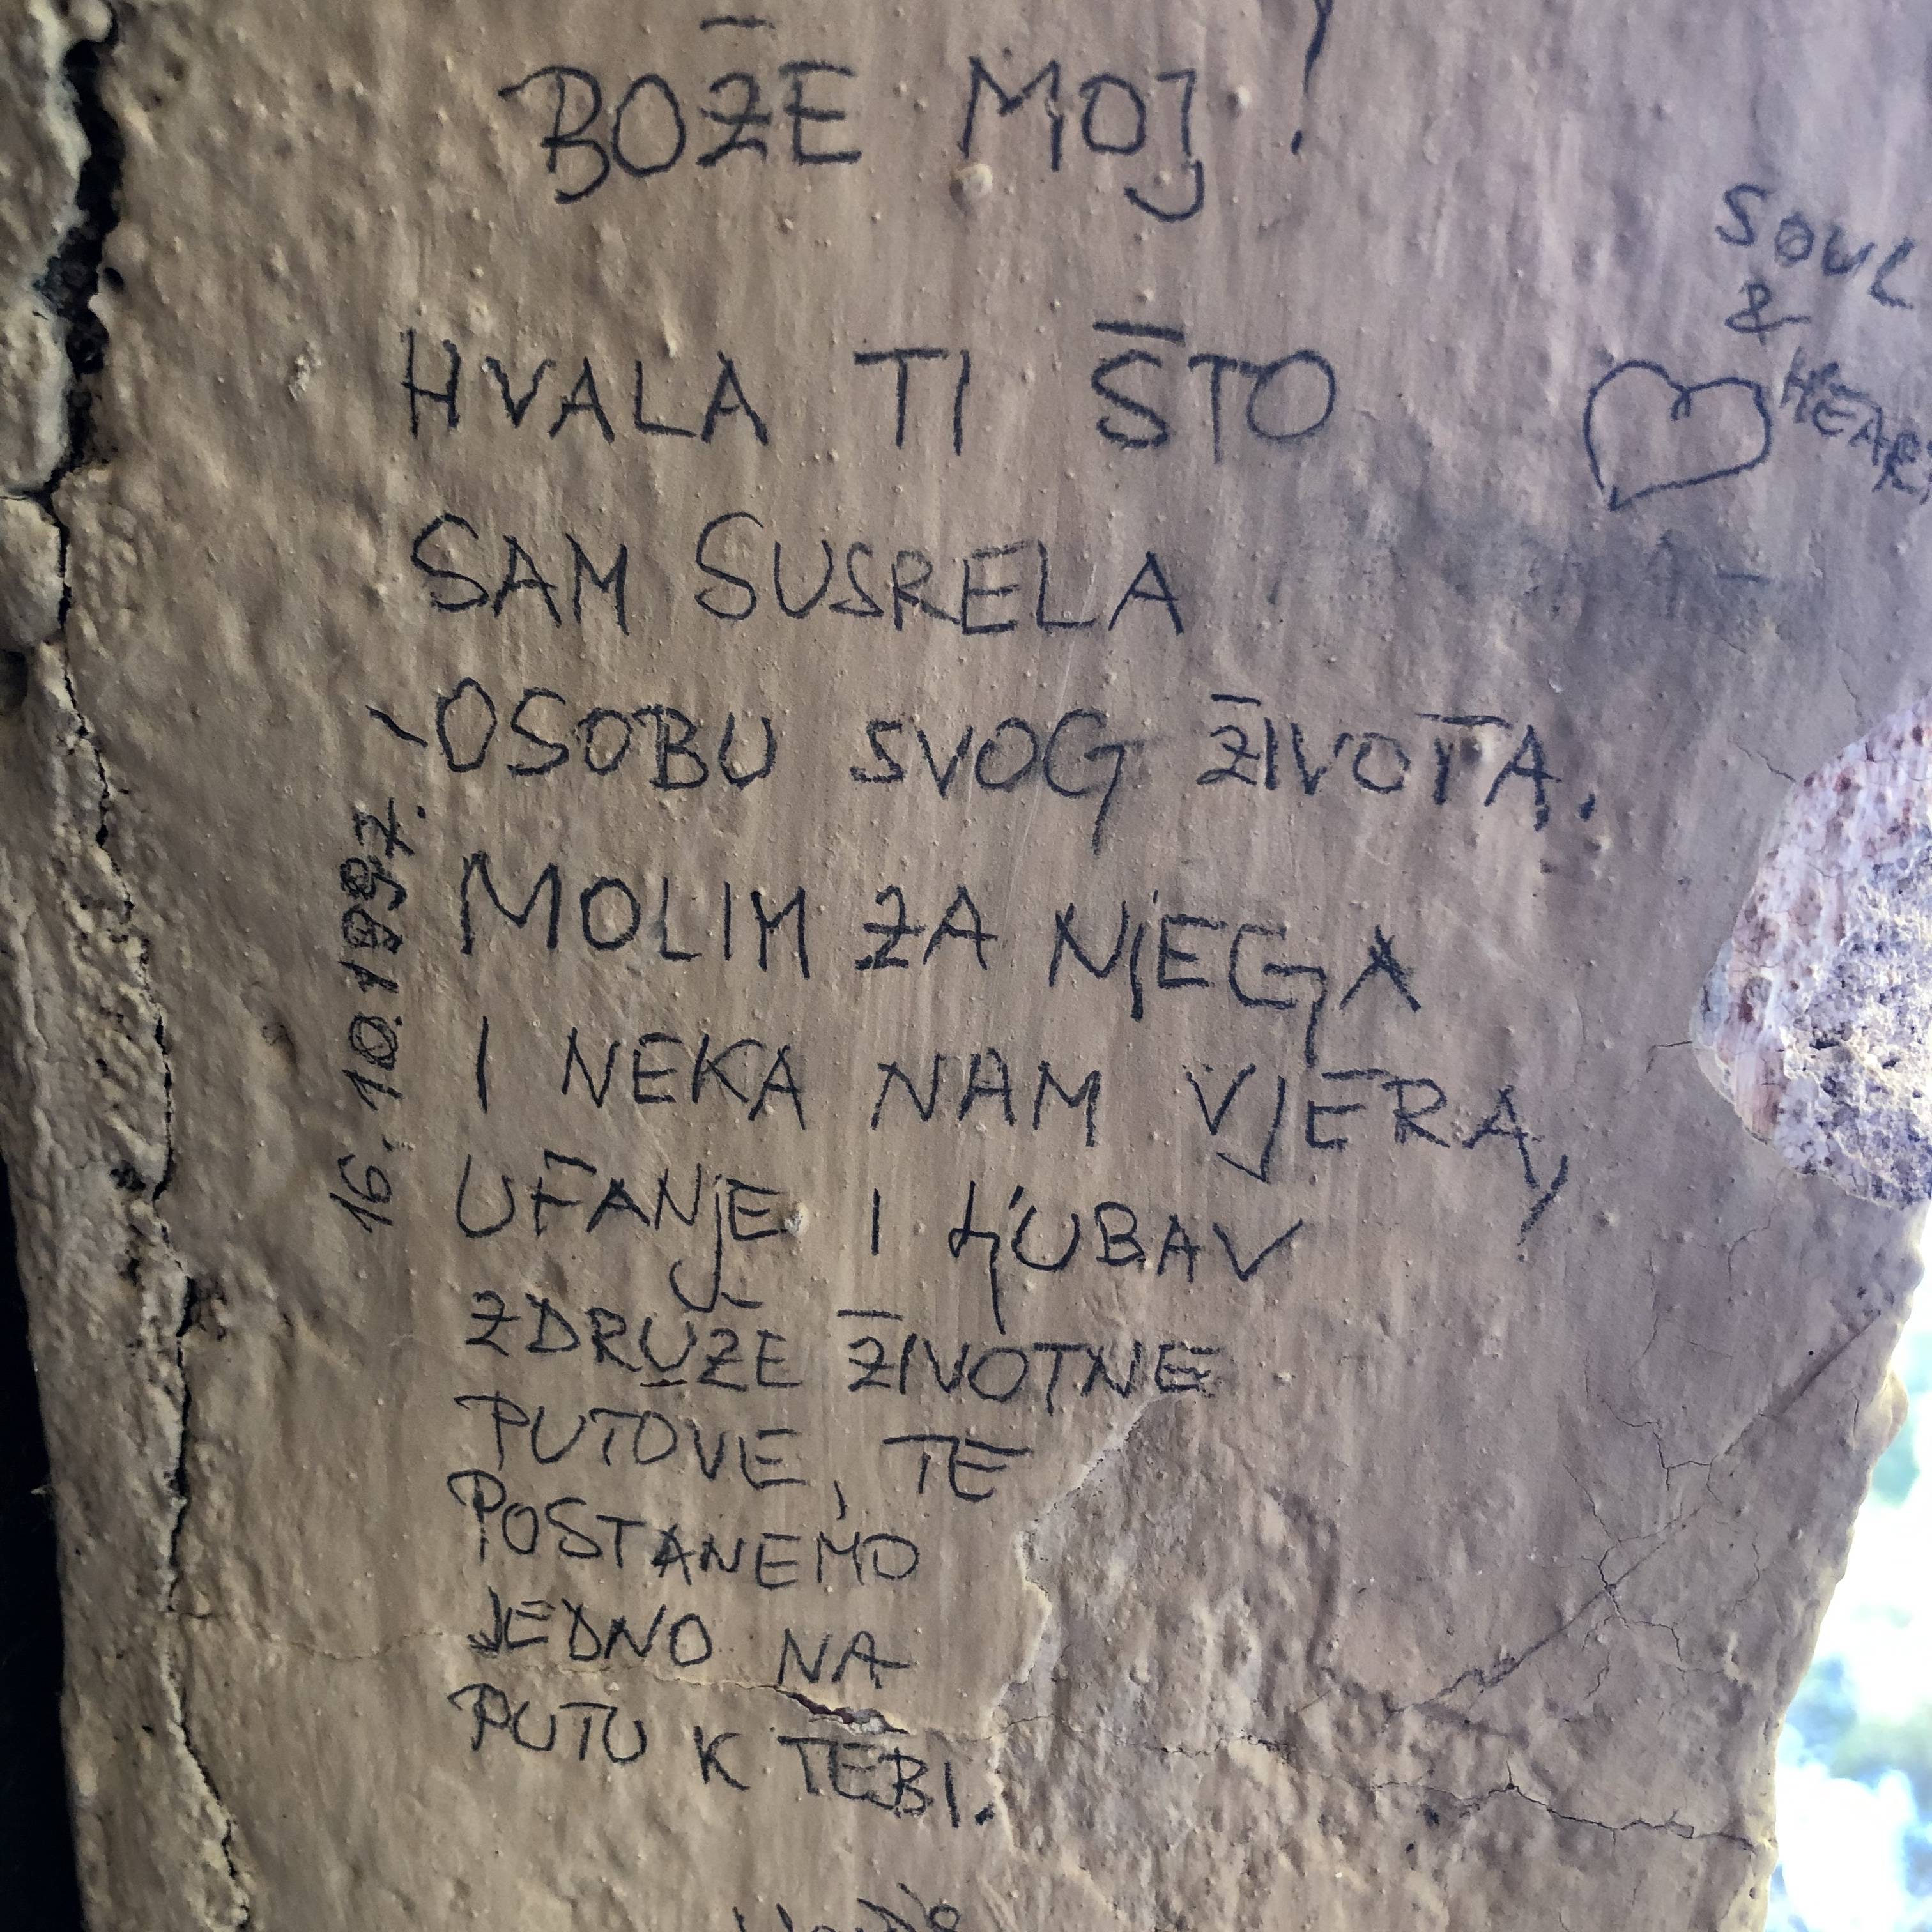 BOŽE MOJ!
HVALA TI ŠTO
SAM SUSRELA
OSOBU SVOG ŽIVOTA.
MOLIM ZA NJEGA
I NEKA NAM VJERA,
UFANJE I LJUBAV
ZDRUŽE ŽIVOTNE
PUTOVE, TE
POSTANEMO
JEDNO NA
PUTU K TEBI.
16. 10. 1997.
SOUL
&
HEART